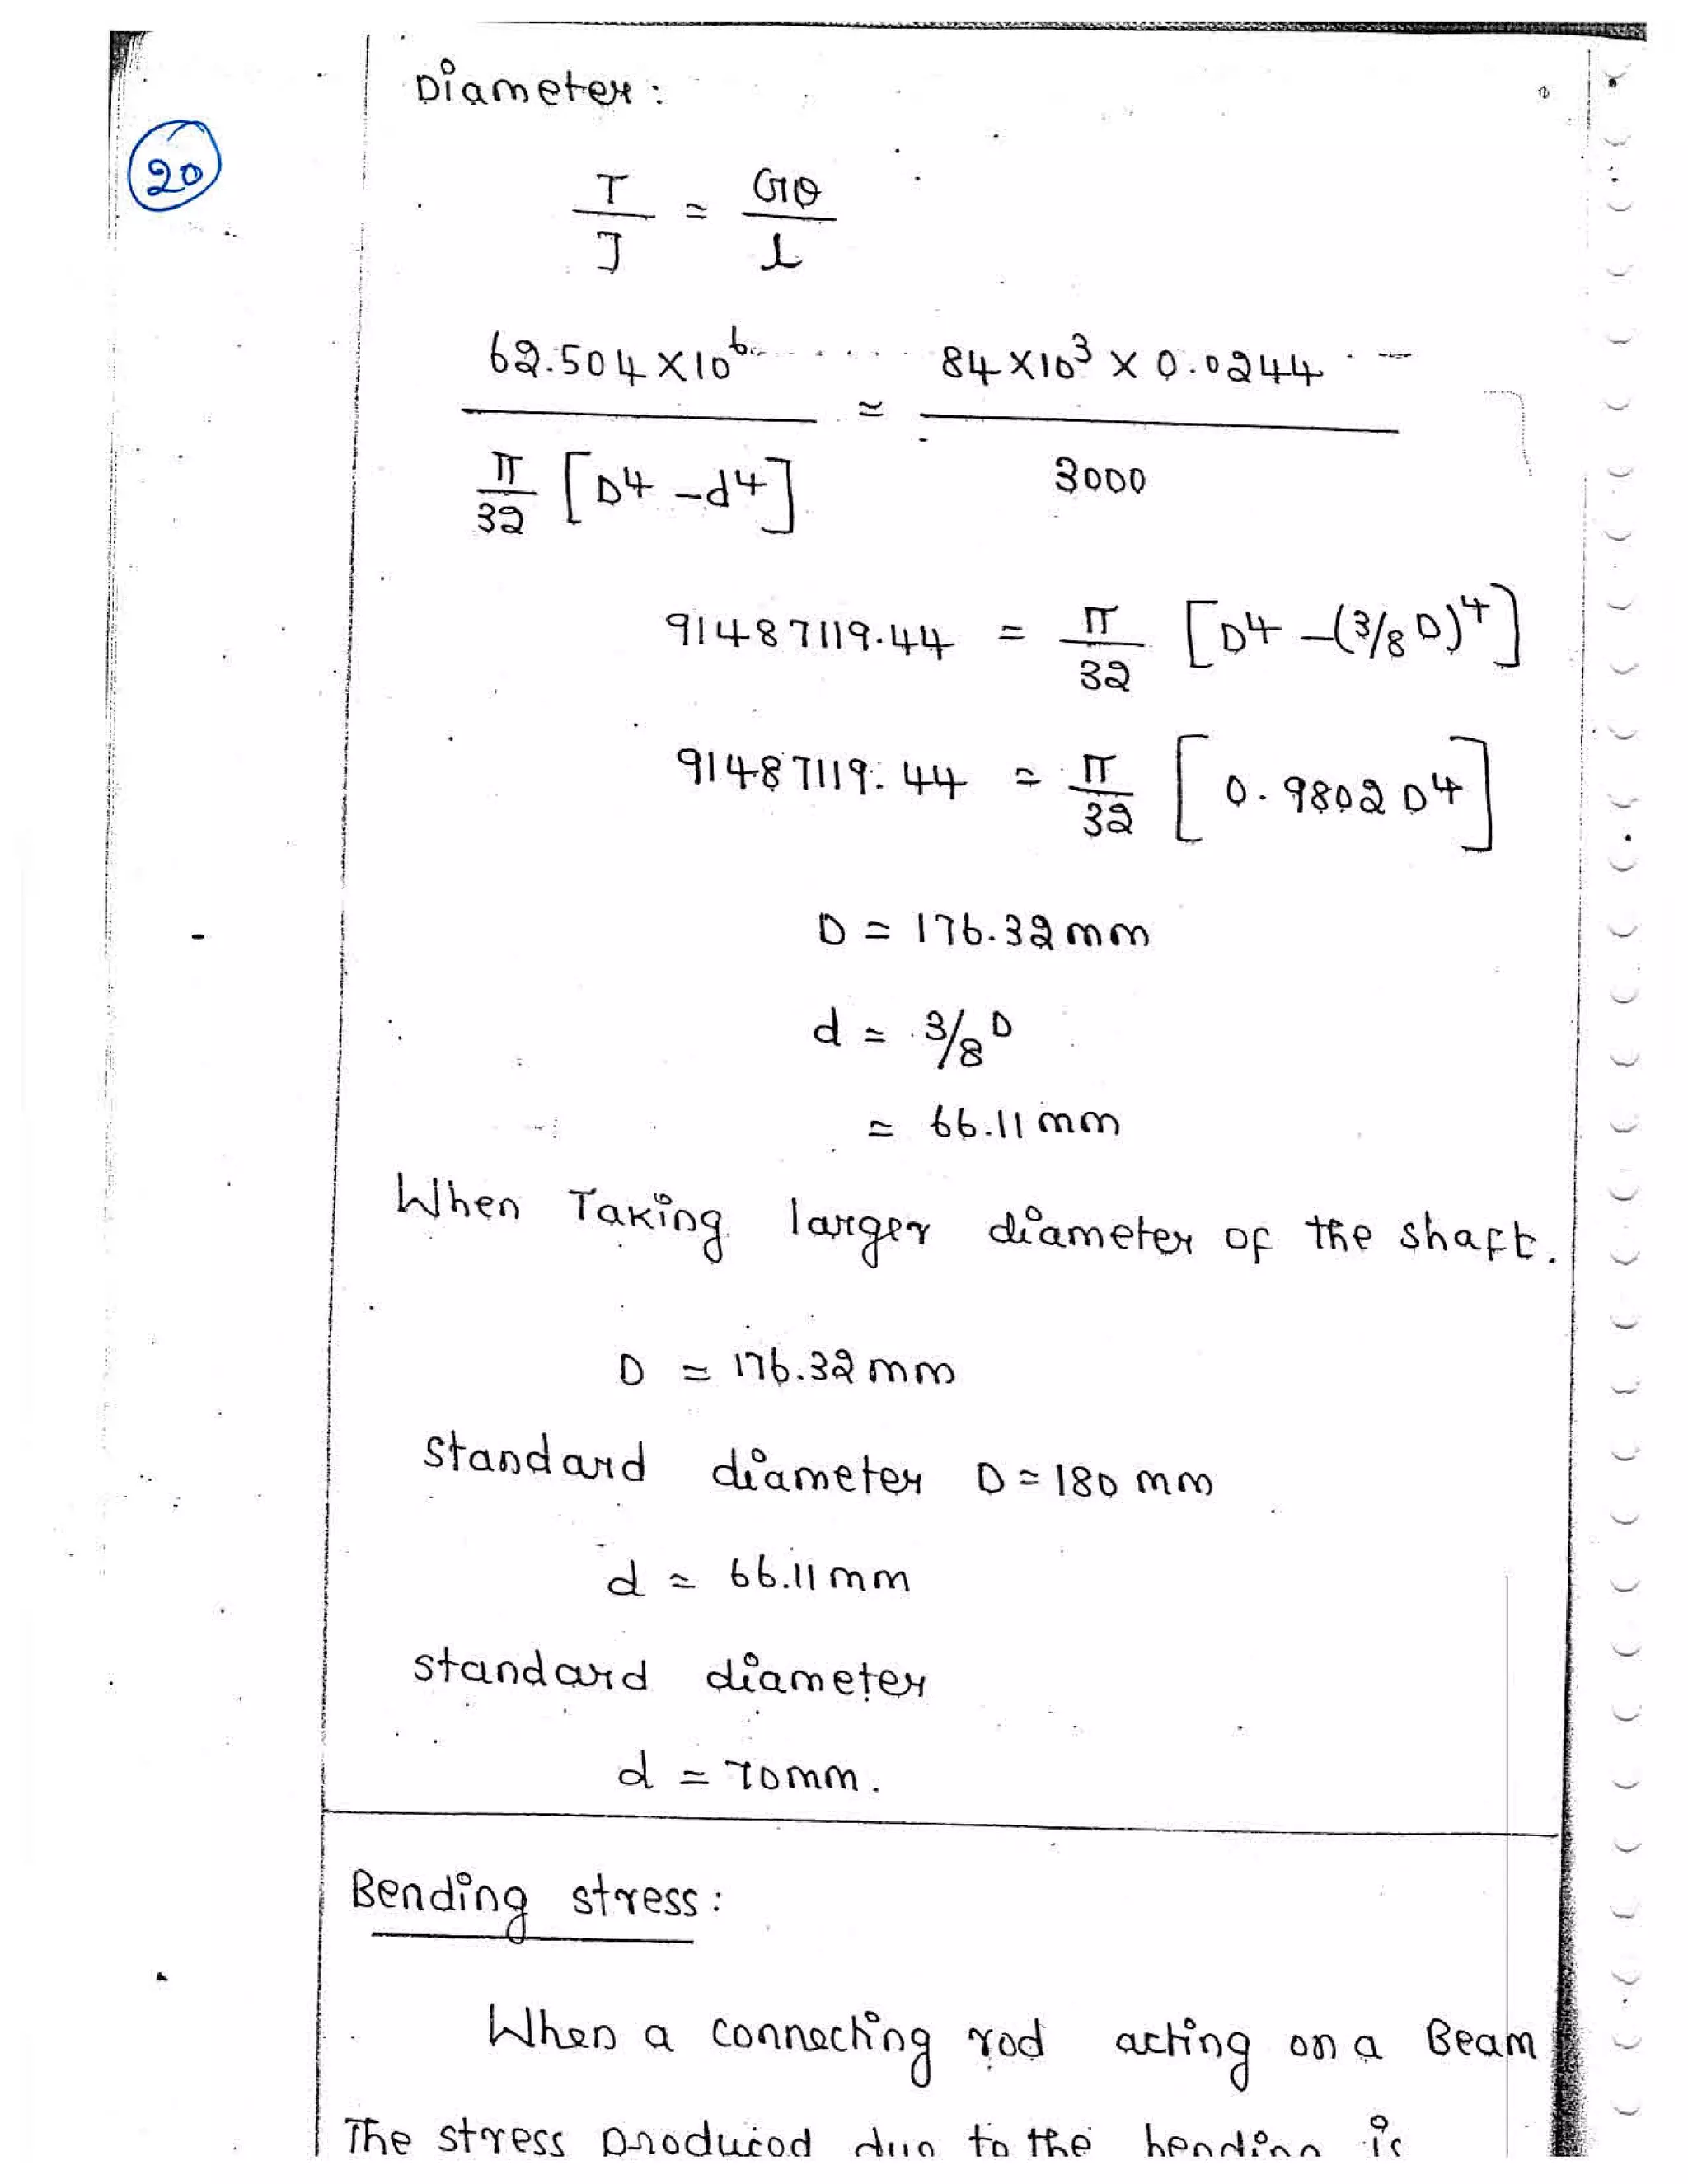 Diameter:
20
T/J = Gθ/l
62.504 × 10^6 / π/32 [D4 - d4] = 84 × 10^3 × 0.0244 / 3000
91487119.44 = π/32 [D4 - (3/8 D)^4]
91487119.44 = π/32 [0.9802 D4]
D = 176.32 mm
d = 3/8 D
= 66.11 mm
When Taking larger diameter of the shaft.
D = 176.32 mm
standard diameter D = 180 mm
d = 66.11 mm
standard diameter
d = 70mm.
Bending stress:
When a connecting rod acting on a Beam
The stress produced due to the bending is